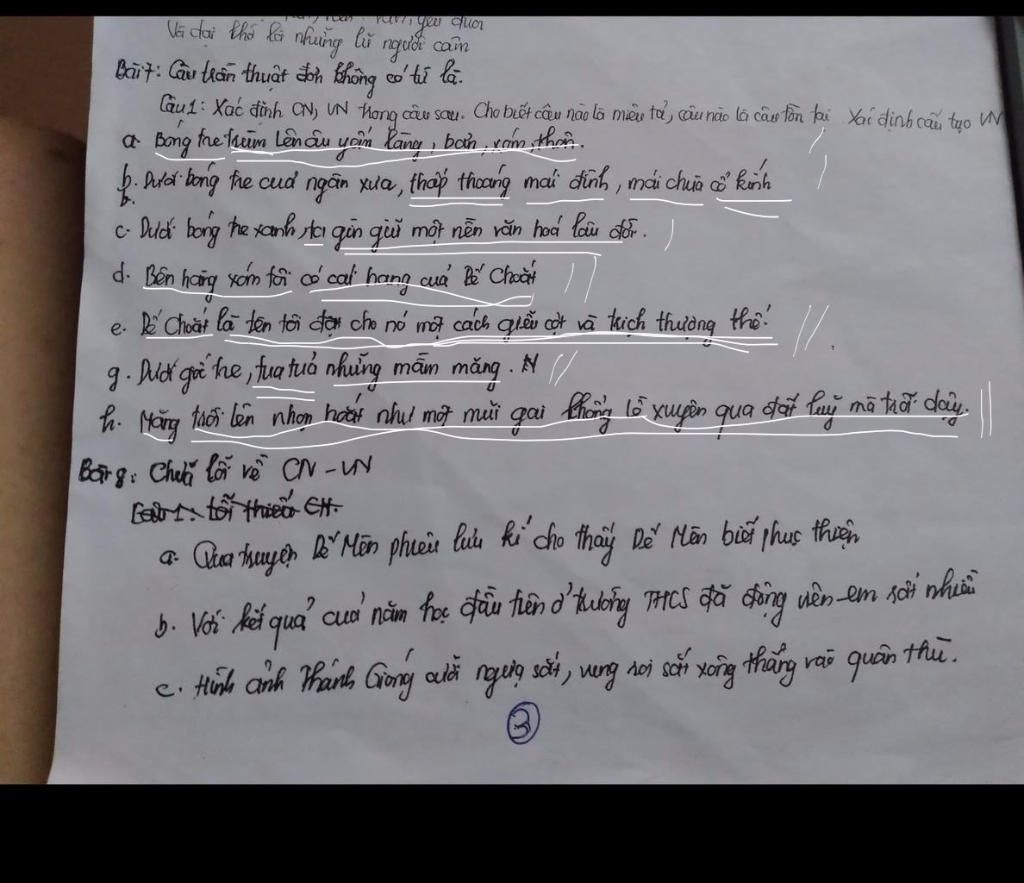 yêu đuối
Và dại khờ là những lũ người câm
Bài 7: Câu trần thuật đơn không có từ là.
Câu 1: Xác định CN, VN trong câu sau. Cho biết câu nào là miêu tả, câu nào là câu tồn tại Xác định cấu tạo VN
a. Bóng tre trùm lên âu yếm làng, bản, xóm, thôn.
b. Dưới bóng tre của ngàn xưa, thấp thoáng mái đình, mái chùa cổ kính
c. Dưới bóng tre xanh, ta gìn giữ một nền văn hoá lâu đời.
d. Bên hàng xóm tôi có cái hang của Dế Choắt
e. Dế Choắt là tên tôi đặt cho nó một cách giễu cợt và trịch thượng thế.
g. Dưới gốc tre, tua tủa những mầm măng.
h. Măng trồi lên nhọn hoắt như một mũi gai khổng lồ xuyên qua đất luỹ mà trỗi dậy.
Bài 8: Chữa lỗi về CN - VN
Câu 1: lỗi thiếu CN.
a. Qua truyện Dế Mèn phiêu lưu kí cho thấy Dế Mèn biết phục thiện
b. Với kết quả của năm học đầu tiên ở trường THCS đã động viên em rất nhiều
c. Hình ảnh Thánh Gióng cưỡi ngựa sắt, vung roi sắt xông thẳng vào quân thù.
3